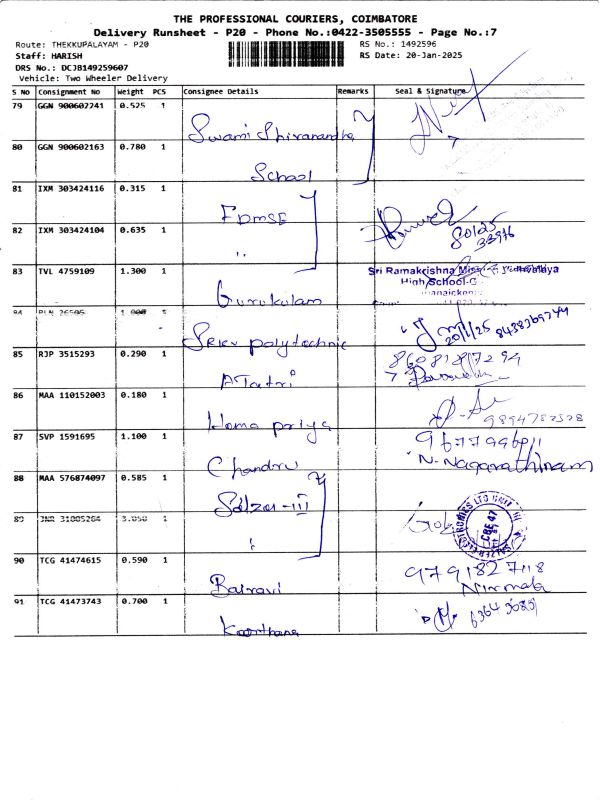 THE PROFESSIONAL COURIERS, COIMBATORE
Delivery Runsheet - P20 - Phone No.:0422-3505555 - Page No.:7
Route: THEKKUPALAYAM - P20 RS No.: 1492596
Staff: HARISH RS Date: 20-Jan-2025
DRS No.: DCJB149259607
Vehicle: Two Wheeler Delivery
S No Consignment No Weight PCS Consignee Details Remarks Seal & Signature
79 GGN 900602241 0.525 1 Swami Shivanandha
80 GGN 900602163 0.780 1 School
81 IXM 303424116 0.315 1 FDMSE
82 IXM 303424104 0.635 1 ,, 33976
83 TVL 4759109 1.300 1 Gurukulam Sri Ramakrishna Mission Vidhyalaya
High School-G
84 PLN 26505 1.000 Sriev polytechnic 20/1/25 8438369744
85 RJP 3515293 0.290 1 8608187294
86 MAA 110152003 0.180 1 Hema priya 9894782528
87 SVP 1591695 1.100 1 Chandru N. Nagarathinam
88 MAA 576874097 0.585 1 Salzer-III
89 JNR 31005264 3.050 SALZER ELECTRONICS LTD UNIT III CBE 47
90 TCG 41474615 0.590 1 Bairavi 9791827118
Nirmala
91 TCG 41473743 0.700 1 Keerthana